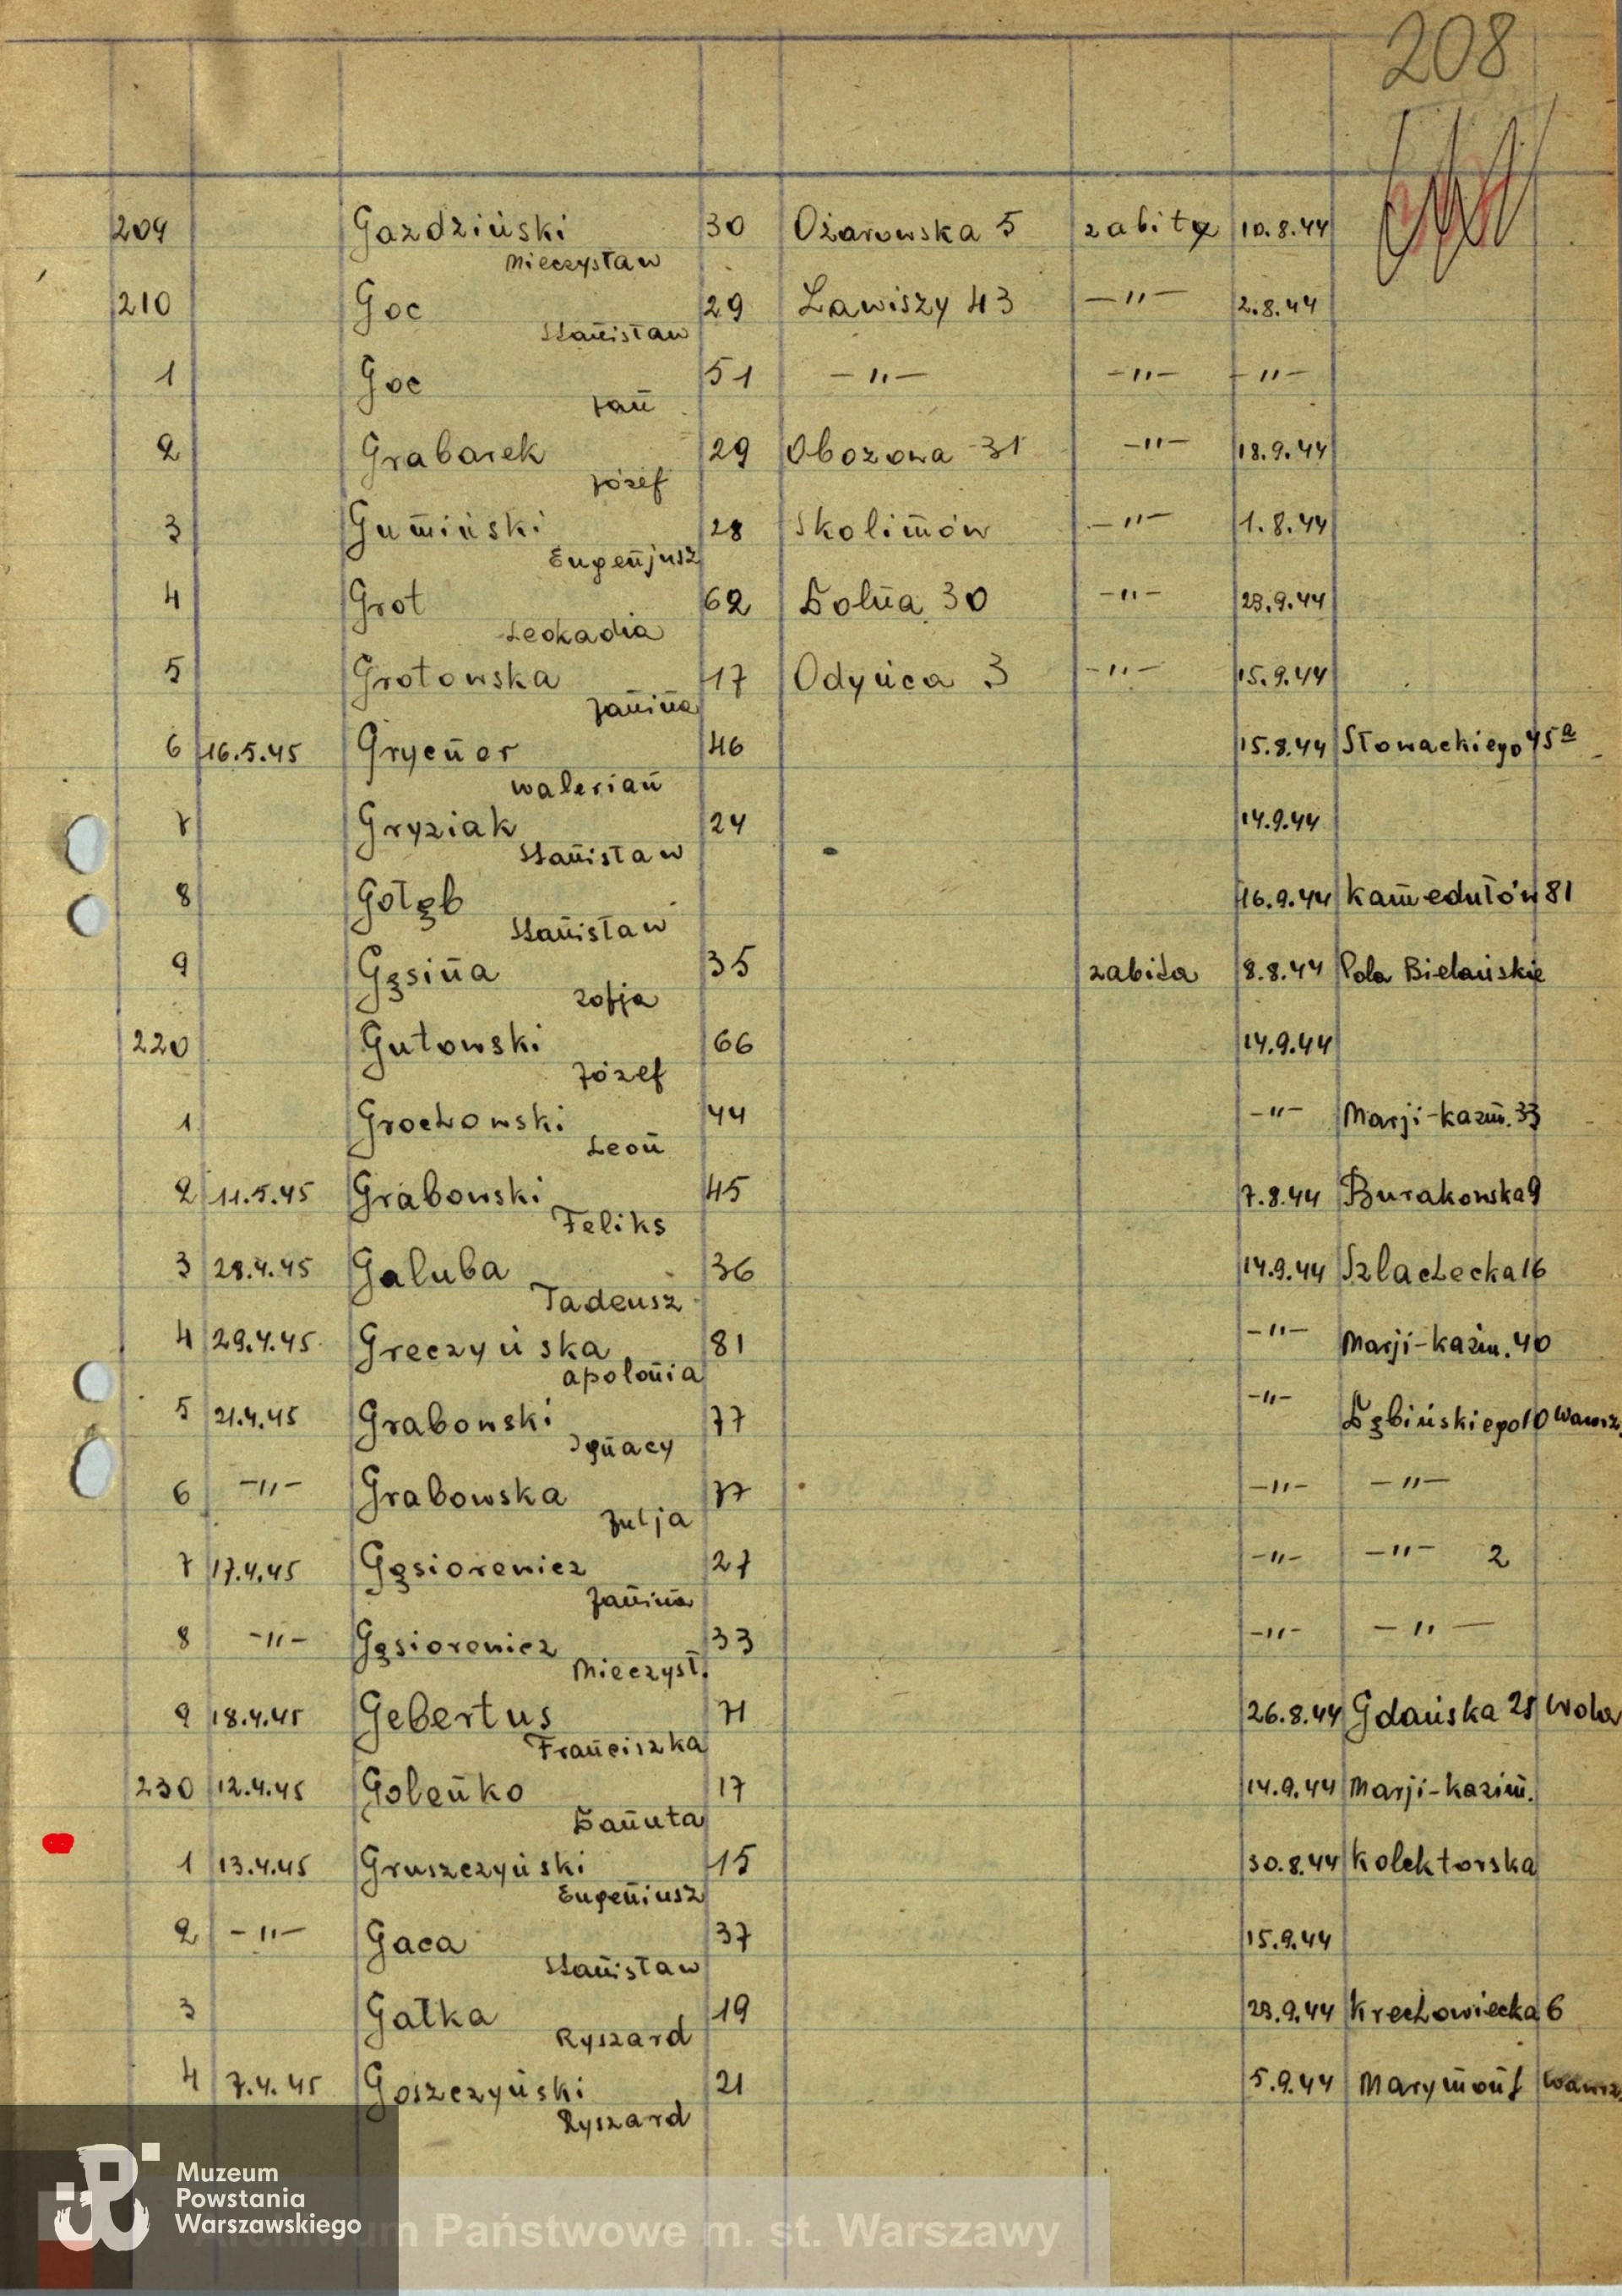 208
209 Gazdziński 30 Ożarowska 5 zabity 10.8.44
Mieczysław
210 Goc 29 Zawiszy 43 —"— 2.8.44
Stanisław
1 Goc 51 —"— —"— —"—
Jan
2 Grabarek 29 Obozowa 31 —"— 18.9.44
Józef
3 Gumiński 28 Skolimów —"— 1.8.44
Eugenjusz
4 Grot 62 Dolna 30 —"— 23.9.44
Leokadia
5 Grotowska 17 Odyńca 3 —"— 15.9.44
Janina
6 16.5.45 Grycner 46 15.8.44 Słowackiego 45a
Walerian
7 Gryziak 24 14.9.44
Stanisław
8 Gołąb 16.9.44 Kamedułów 81
Stanisław
9 Gąsina 35 zabita 8.8.44 Pola Bielańskie
Zofja
220 Gutowski 66 14.9.44
Józef
1 Grochowski 44 —"— Marji-Kazim. 33
Leon
2 11.5.45 Grabowski 45 7.8.44 Burakowska 9
Feliks
3 28.4.45 Galuba 36 14.9.44 Szlachecka 16
Tadeusz
4 29.4.45 Greczyńska 81 —"— Marji-Kazim. 40
Apolonia
5 21.4.45 Grabowski 77 —"— Dębińskiego 10 Wawrz.
Ignacy
6 —"— Grabowska 77 —"— —"—
Julja
7 17.4.45 Gąsiorewicz 27 —"— —"— 2
Janina
8 —"— Gąsiorewicz 33 —"— —"—
Mieczysł.
9 18.4.45 Gebertus 71 26.8.44 Gdańska 25 Wola
Franciszka
230 12.4.45 Goleńko 17 14.9.44 Marji-Kazim.
Danuta
1 13.4.45 Gruszczyński 15 30.8.44 Kolektorska
Eugeniusz
2 —"— Gaca 37 15.9.44
Stanisław
3 Gałka 19 23.9.44 Krechowiecka 6
Ryszard
4 7.4.45 Goszczyński 21 5.9.44 Marymont Wawrz.
Ryszard
Muzeum
Powstania
Warszawskiego
Archiwum Państwowe m. st. Warszawy